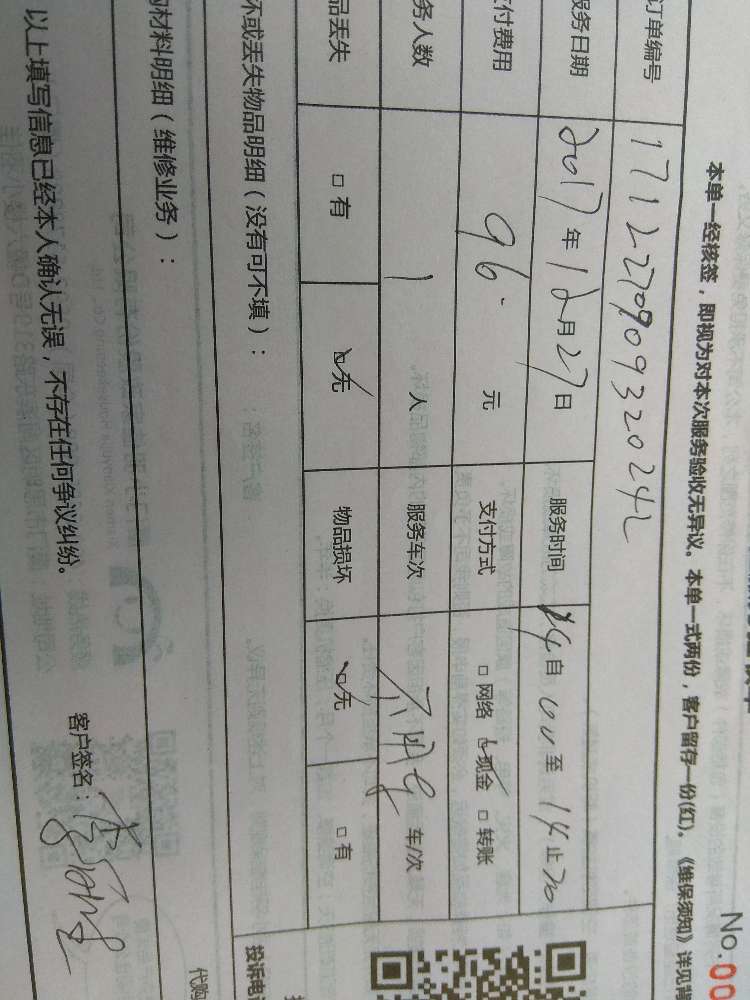 No.00
本单一经核签，即视为对本次服务验收无异议。本单一式两份，客户留存一份(红)。《维保须知》详见背
订单编号 1712270909320242
服务日期 2017年12月27日 服务时间 自 至14止30
支付费用 96.元 支付方式 □网络 ☑现金 □转账
务人数 1人 服务车次 不用车 车/次
品丢失 □有 ☑无 物品损坏 ☑无 □有
坏或丢失物品明细(没有可不填)：
投诉电
材料明细(维修业务)：
代购
以上填写信息已经本人确认无误，不存在任何争议纠纷。
客户签名：